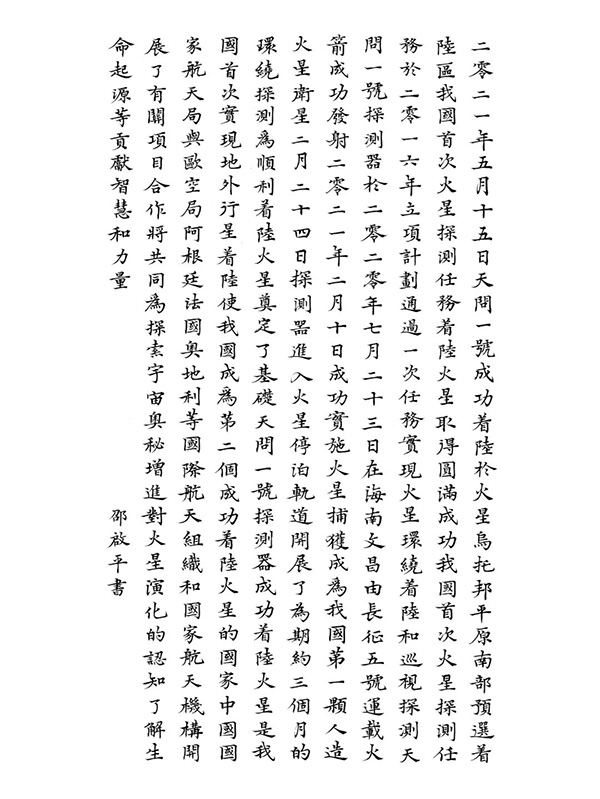 二零二一年五月十五日天問一號成功着陸於火星烏托邦平原南部預選着
陸區我國首次火星探測任務着陸火星取得圓滿成功我國首次火星探測任
務於二零一六年立項計劃通過一次任務實現火星環繞着陸和巡視探測天
問一號探測器於二零二零年七月二十三日在海南文昌由長征五號運載火
箭成功發射二零二一年二月十日成功實施火星捕獲成為我國第一顆人造
火星衛星二月二十四日探測器進入火星停泊軌道開展了為期約三個月的
環繞探測為順利着陸火星奠定了基礎天問一號探測器成功着陸火星是我
國首次實現地外行星着陸使我國成為第二個成功着陸火星的國家中國國
家航天局與歐空局阿根廷法國奥地利等國際航天組織和國家航天機構開
展了有關項目合作將共同為探索宇宙奥秘增進對火星演化的認知了解生
命起源等貢獻智慧和力量
邵啟平書